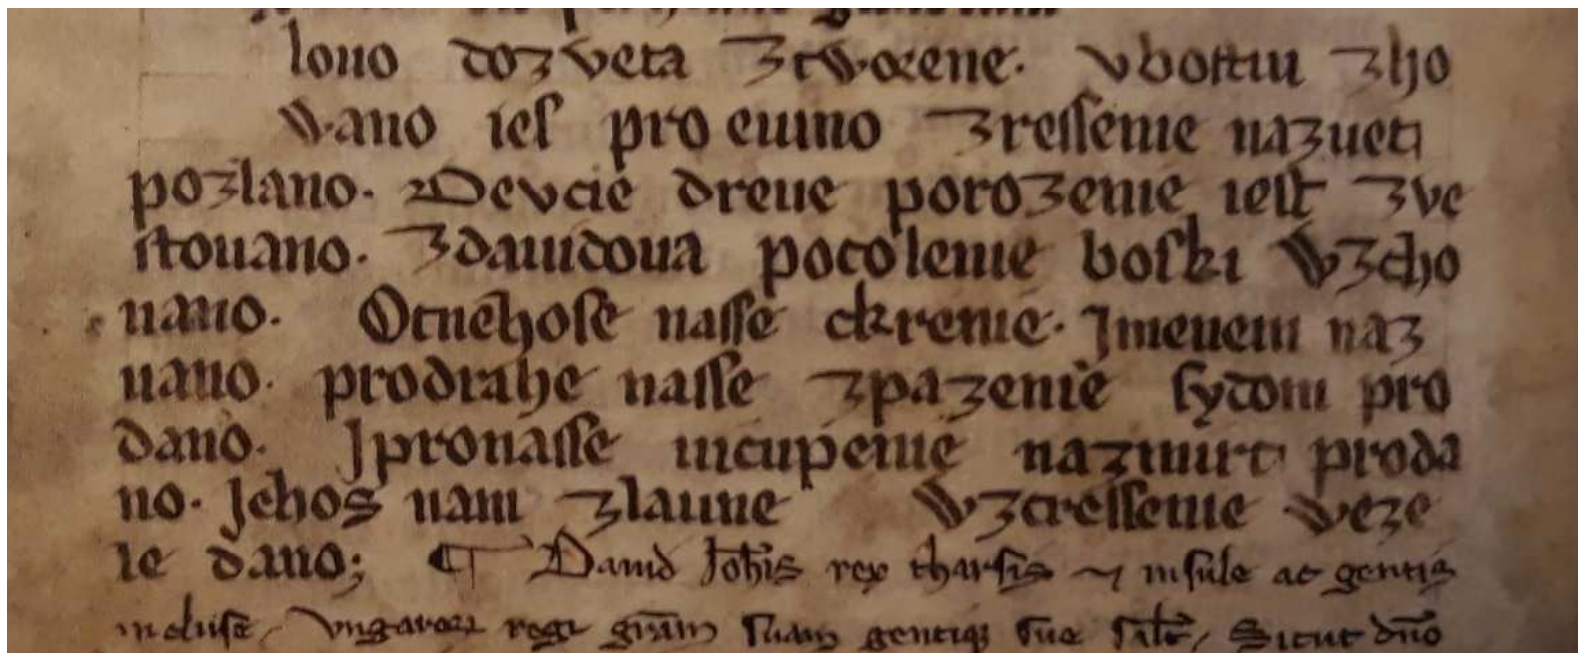 louo dozveta Ztworene. vbostiu zho
wano ies pro euuno zressenie nazueti
pozlano. Devcie dreue porozenie iest zve
stouano. Zdauidoua pocolenie boski wzcho
uano. Otnēhose nasse ckrenie. Jmenem naz
uano. prodrahe nasse zpazenie sydom pro
dano. Jpronasse uicupenie nazmirt proda
no. Jehos nam zlaune wzcressenie veze
le dano; ¶ Dauid Joh̄is rex tharsis ⁊ insule ac gentis
gentiqꝫ sue Sicut dn̄o